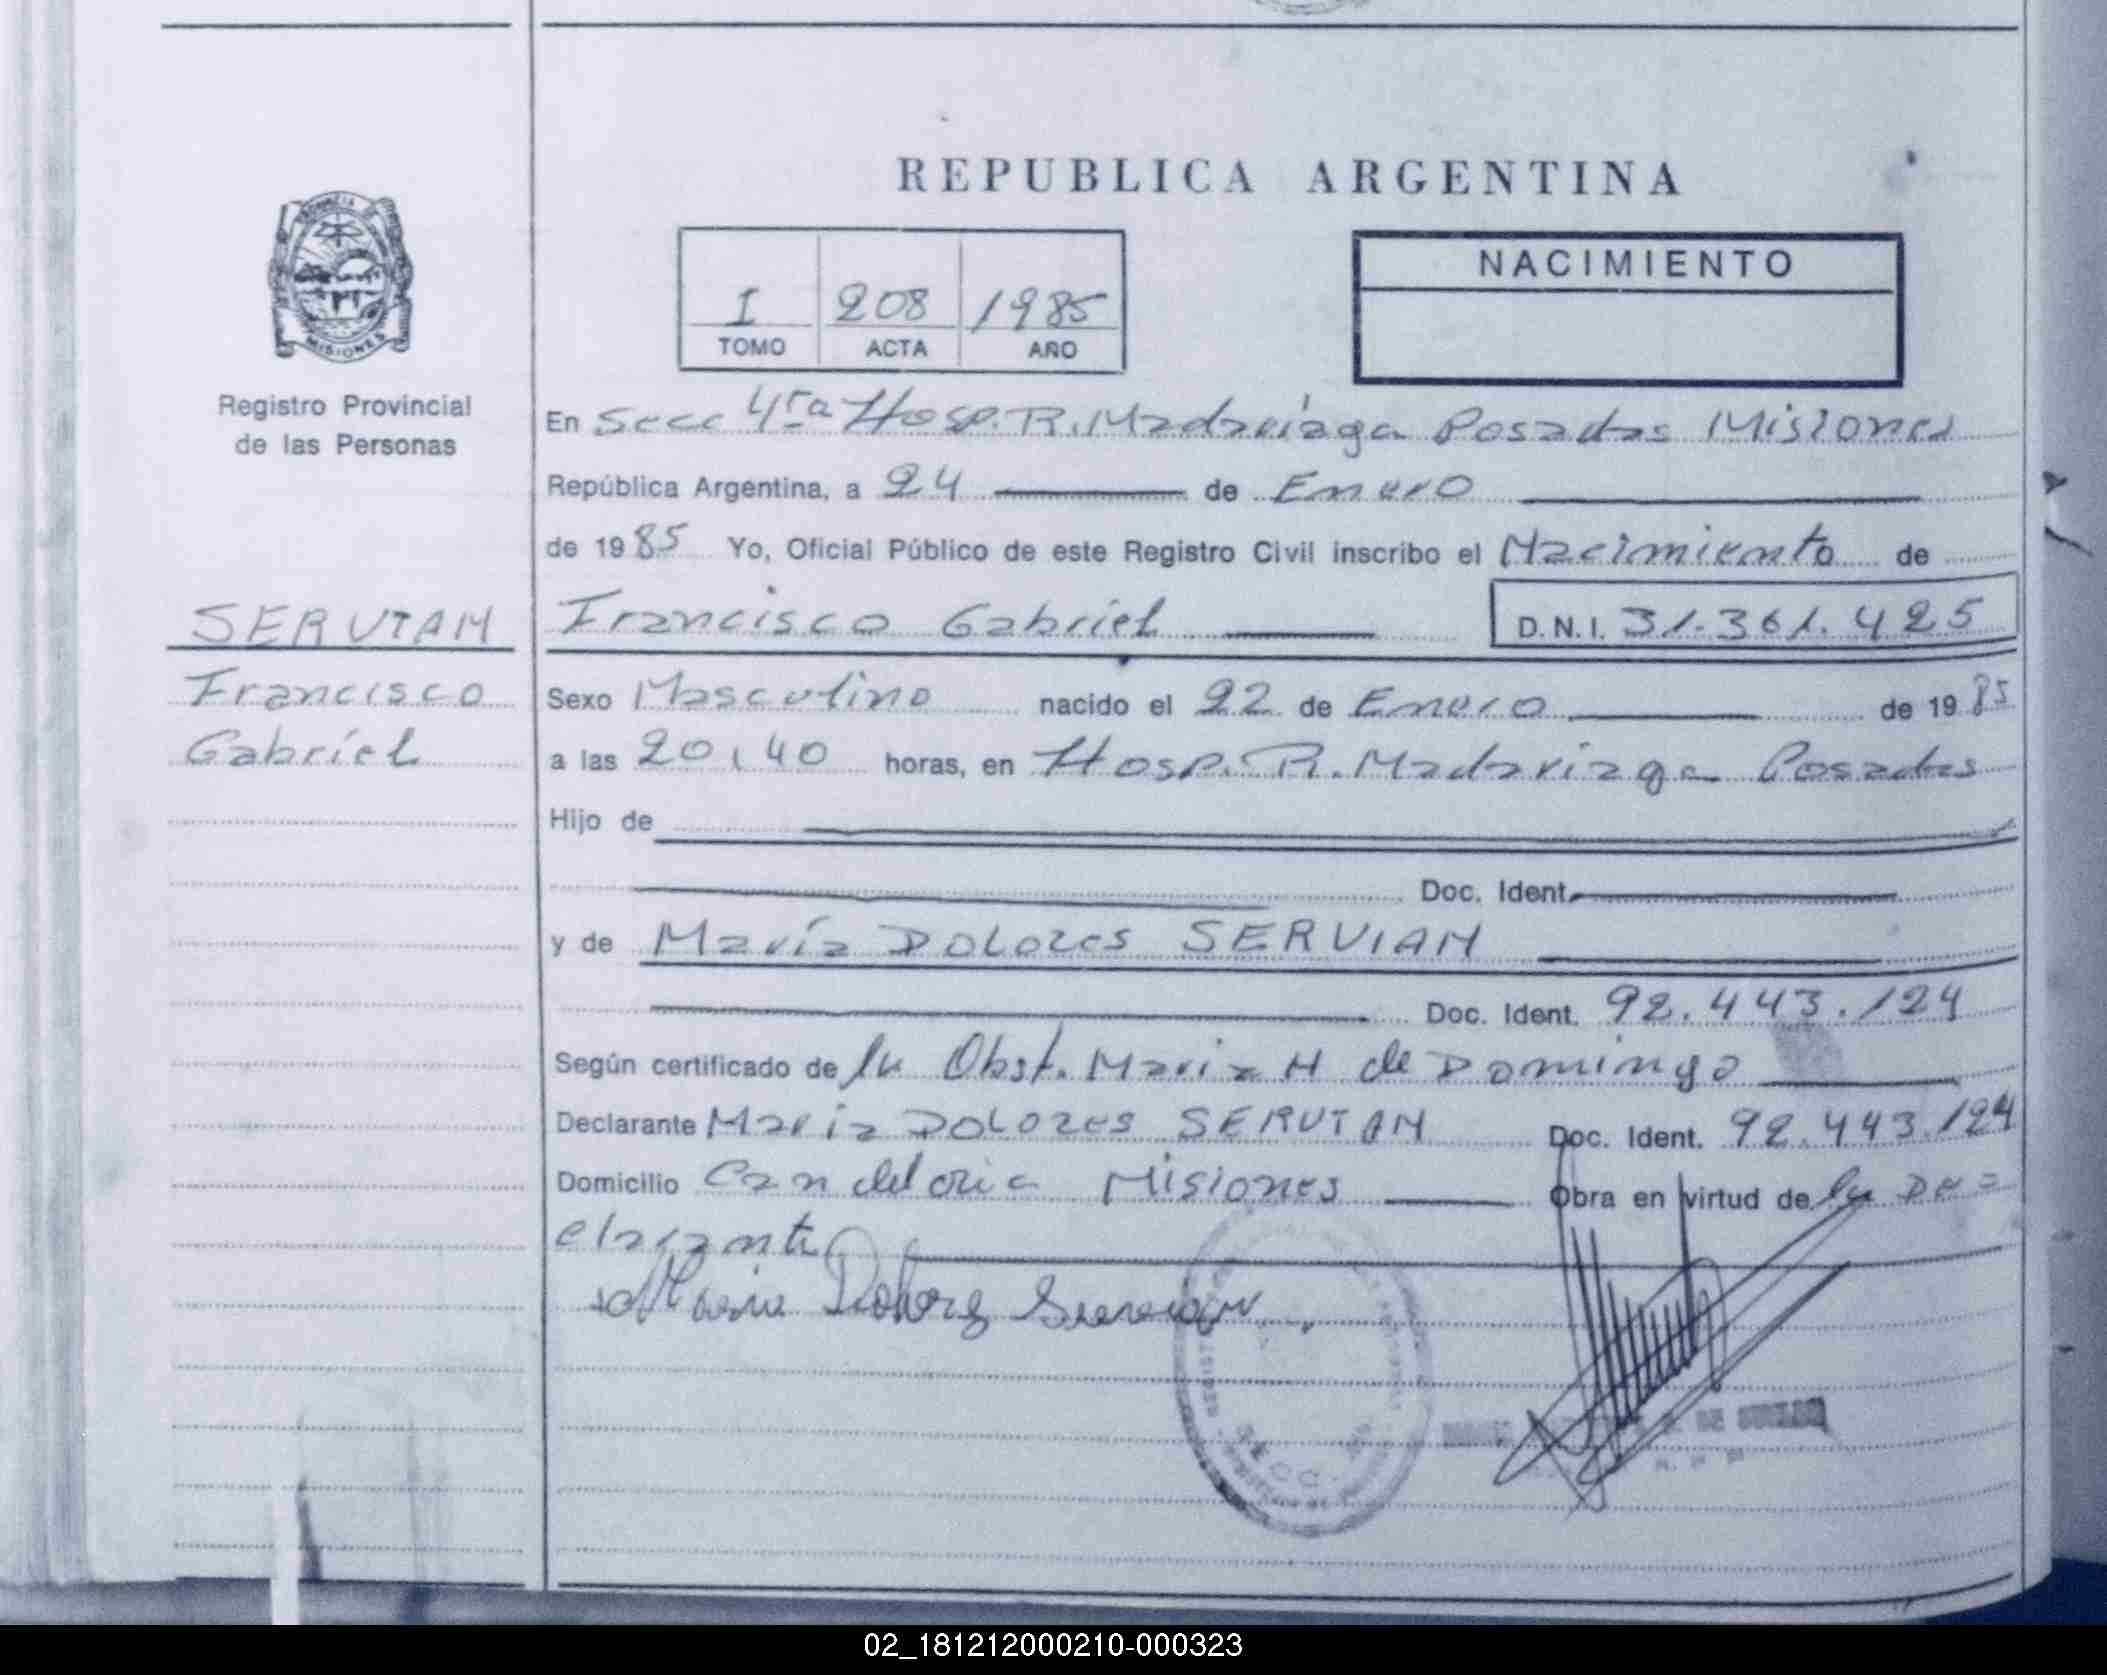 REPUBLICA ARGENTINA
PROVINCIA DE
MISIONES
I 208 1985
TOMO ACTA AÑO
NACIMIENTO
Registro Provincial
de las Personas
En Secc 4ta Hosp. R. Madariaga Posadas Misiones
República Argentina, a 24 de Enero
de 1985 Yo, Oficial Público de este Registro Civil inscribo el Nacimiento de
SERVIAN
Francisco Gabriel D.N.I. 31.361.425
Francisco
Gabriel
Sexo Masculino nacido el 22 de Enero de 1985
a las 20,40 horas, en Hosp. R. Madariaga Posadas
Hijo de
Doc. Ident.
y de María DOLORES SERVIAN
Doc. Ident. 92.443.124
Según certificado de la Obst. Maria H de Domingo
Declarante María DOLORES SERVIAN Doc. Ident. 92.443.124
Domicilio Candelaria Misiones Obra en virtud de la De=
clarante
Maria Dolores Servian
SECC.
DE
02_181212000210-000323